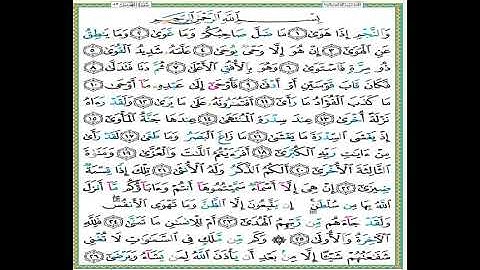 بِسْمِ ٱللَّهِ ٱلرَّحْمَٰنِ ٱلرَّحِيمِ
وَٱلنَّجْمِ إِذَا هَوَىٰ ١ مَا ضَلَّ صَاحِبُكُمْ وَمَا غَوَىٰ ٢ وَمَا يَنطِقُ
عَنِ ٱلْهَوَىٰٓ ٣ إِنْ هُوَ إِلَّا وَحْىٌ يُوحَىٰ ٤ عَلَّمَهُۥ شَدِيدُ ٱلْقُوَىٰ ٥
ذُو مِرَّةٍ فَٱسْتَوَىٰ ٦ وَهُوَ بِٱلْأُفُقِ ٱلْأَعْلَىٰ ٧ ثُمَّ دَنَا فَتَدَلَّىٰ ٨
فَكَانَ قَابَ قَوْسَيْنِ أَوْ أَدْنَىٰ ٩ فَأَوْحَىٰٓ إِلَىٰ عَبْدِهِۦ مَآ أَوْحَىٰ ١٠
مَا كَذَبَ ٱلْفُؤَادُ مَا رَأَىٰٓ ١١ أَفَتُمَٰرُونَهُۥ عَلَىٰ مَا يَرَىٰ ١٢ وَلَقَدْ رَءَاهُ
نَزْلَةً أُخْرَىٰ ١٣ عِندَ سِدْرَةِ ٱلْمُنتَهَىٰ ١٤ عِندَهَا جَنَّةُ ٱلْمَأْوَىٰٓ ١٥
إِذْ يَغْشَى ٱلسِّدْرَةَ مَا يَغْشَىٰ ١٦ مَا زَاغَ ٱلْبَصَرُ وَمَا طَغَىٰ ١٧ لَقَدْ رَأَىٰ
مِنْ ءَايَٰتِ رَبِّهِ ٱلْكُبْرَىٰٓ ١٨ أَفَرَءَيْتُمُ ٱللَّٰتَ وَٱلْعُزَّىٰ ١٩ وَمَنَوٰةَ
ٱلثَّالِثَةَ ٱلْأُخْرَىٰٓ ٢٠ أَلَكُمُ ٱلذَّكَرُ وَلَهُ ٱلْأُنثَىٰ ٢١ تِلْكَ إِذًا قِسْمَةٌ
ضِيزَىٰٓ ٢٢ إِنْ هِىَ إِلَّآ أَسْمَآءٌ سَمَّيْتُمُوهَآ أَنتُمْ وَءَابَآؤُكُم مَّآ أَنزَلَ
ٱللَّهُ بِهَا مِن سُلْطَٰنٍ إِن يَتَّبِعُونَ إِلَّا ٱلظَّنَّ وَمَا تَهْوَى ٱلْأَنفُسُ
وَلَقَدْ جَآءَهُم مِّن رَّبِّهِمُ ٱلْهُدَىٰٓ ٢٣ أَمْ لِلْإِنسَٰنِ مَا تَمَنَّىٰ ٢٤ فَلِلَّهِ
ٱلْءَاخِرَةُ وَٱلْأُولَىٰ ٢٥ وَكَم مِّن مَّلَكٍ فِى ٱلسَّمَٰوَٰتِ لَا تُغْنِى
شَفَٰعَتُهُمْ شَيْـًٔا إِلَّا مِنۢ بَعْدِ أَن يَأْذَنَ ٱللَّهُ لِمَن يَشَآءُ وَيَرْضَىٰٓ ٢٦